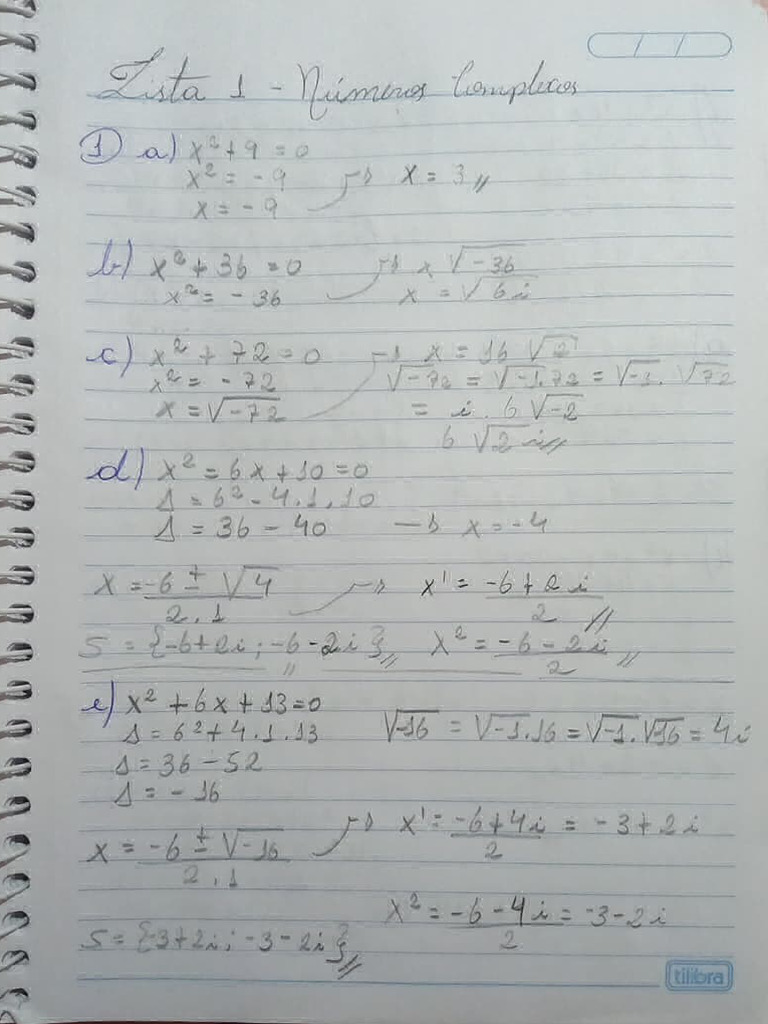 Lista 1 - Números Complexos
1 a) x² + 9 = 0
x² = - 9 → x = 3 //
x = - 9
b) x² + 36 = 0 → x √-36
x² = - 36 x = √6i
c) x² + 72 = 0 → x = 16 √2
x² = - 72 √-72 = √-1.72 = √-1 . √72
x = √-72 = i . 6 √-2
6 √2 i //
d) x² = 6x + 10 = 0
Δ = 6² - 4.1.10
Δ = 36 - 40 → x = -4
x = -6 ± √4 / 2.1 → x' = -6 + 2i / 2 //
S = {-6+2i ; -6-2i} // x² = -6 - 2i / 2 //
e) x² + 6x + 13 = 0
Δ = 6² + 4.1.13 √-16 = √-1.16 = √-1.√-16 = 4i
Δ = 36 - 52
Δ = - 16
x = -6 ± √-16 / 2.1 → x' = -6 + 4i / 2 = -3 + 2i
x² = -6 - 4i / 2 = -3 - 2i
S = {-3+2i ; -3-2i} //
tilibra